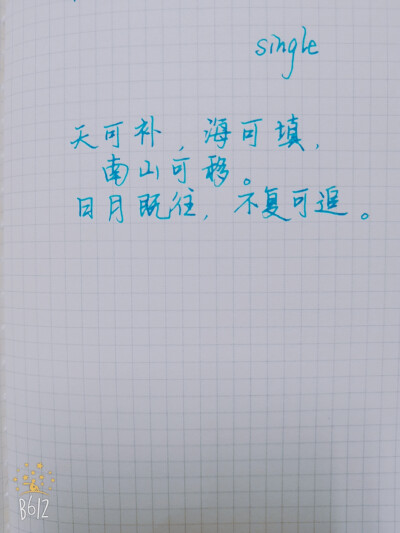 single
天可补，海可填，
南山可移。
日月既往，不复可追。
B612